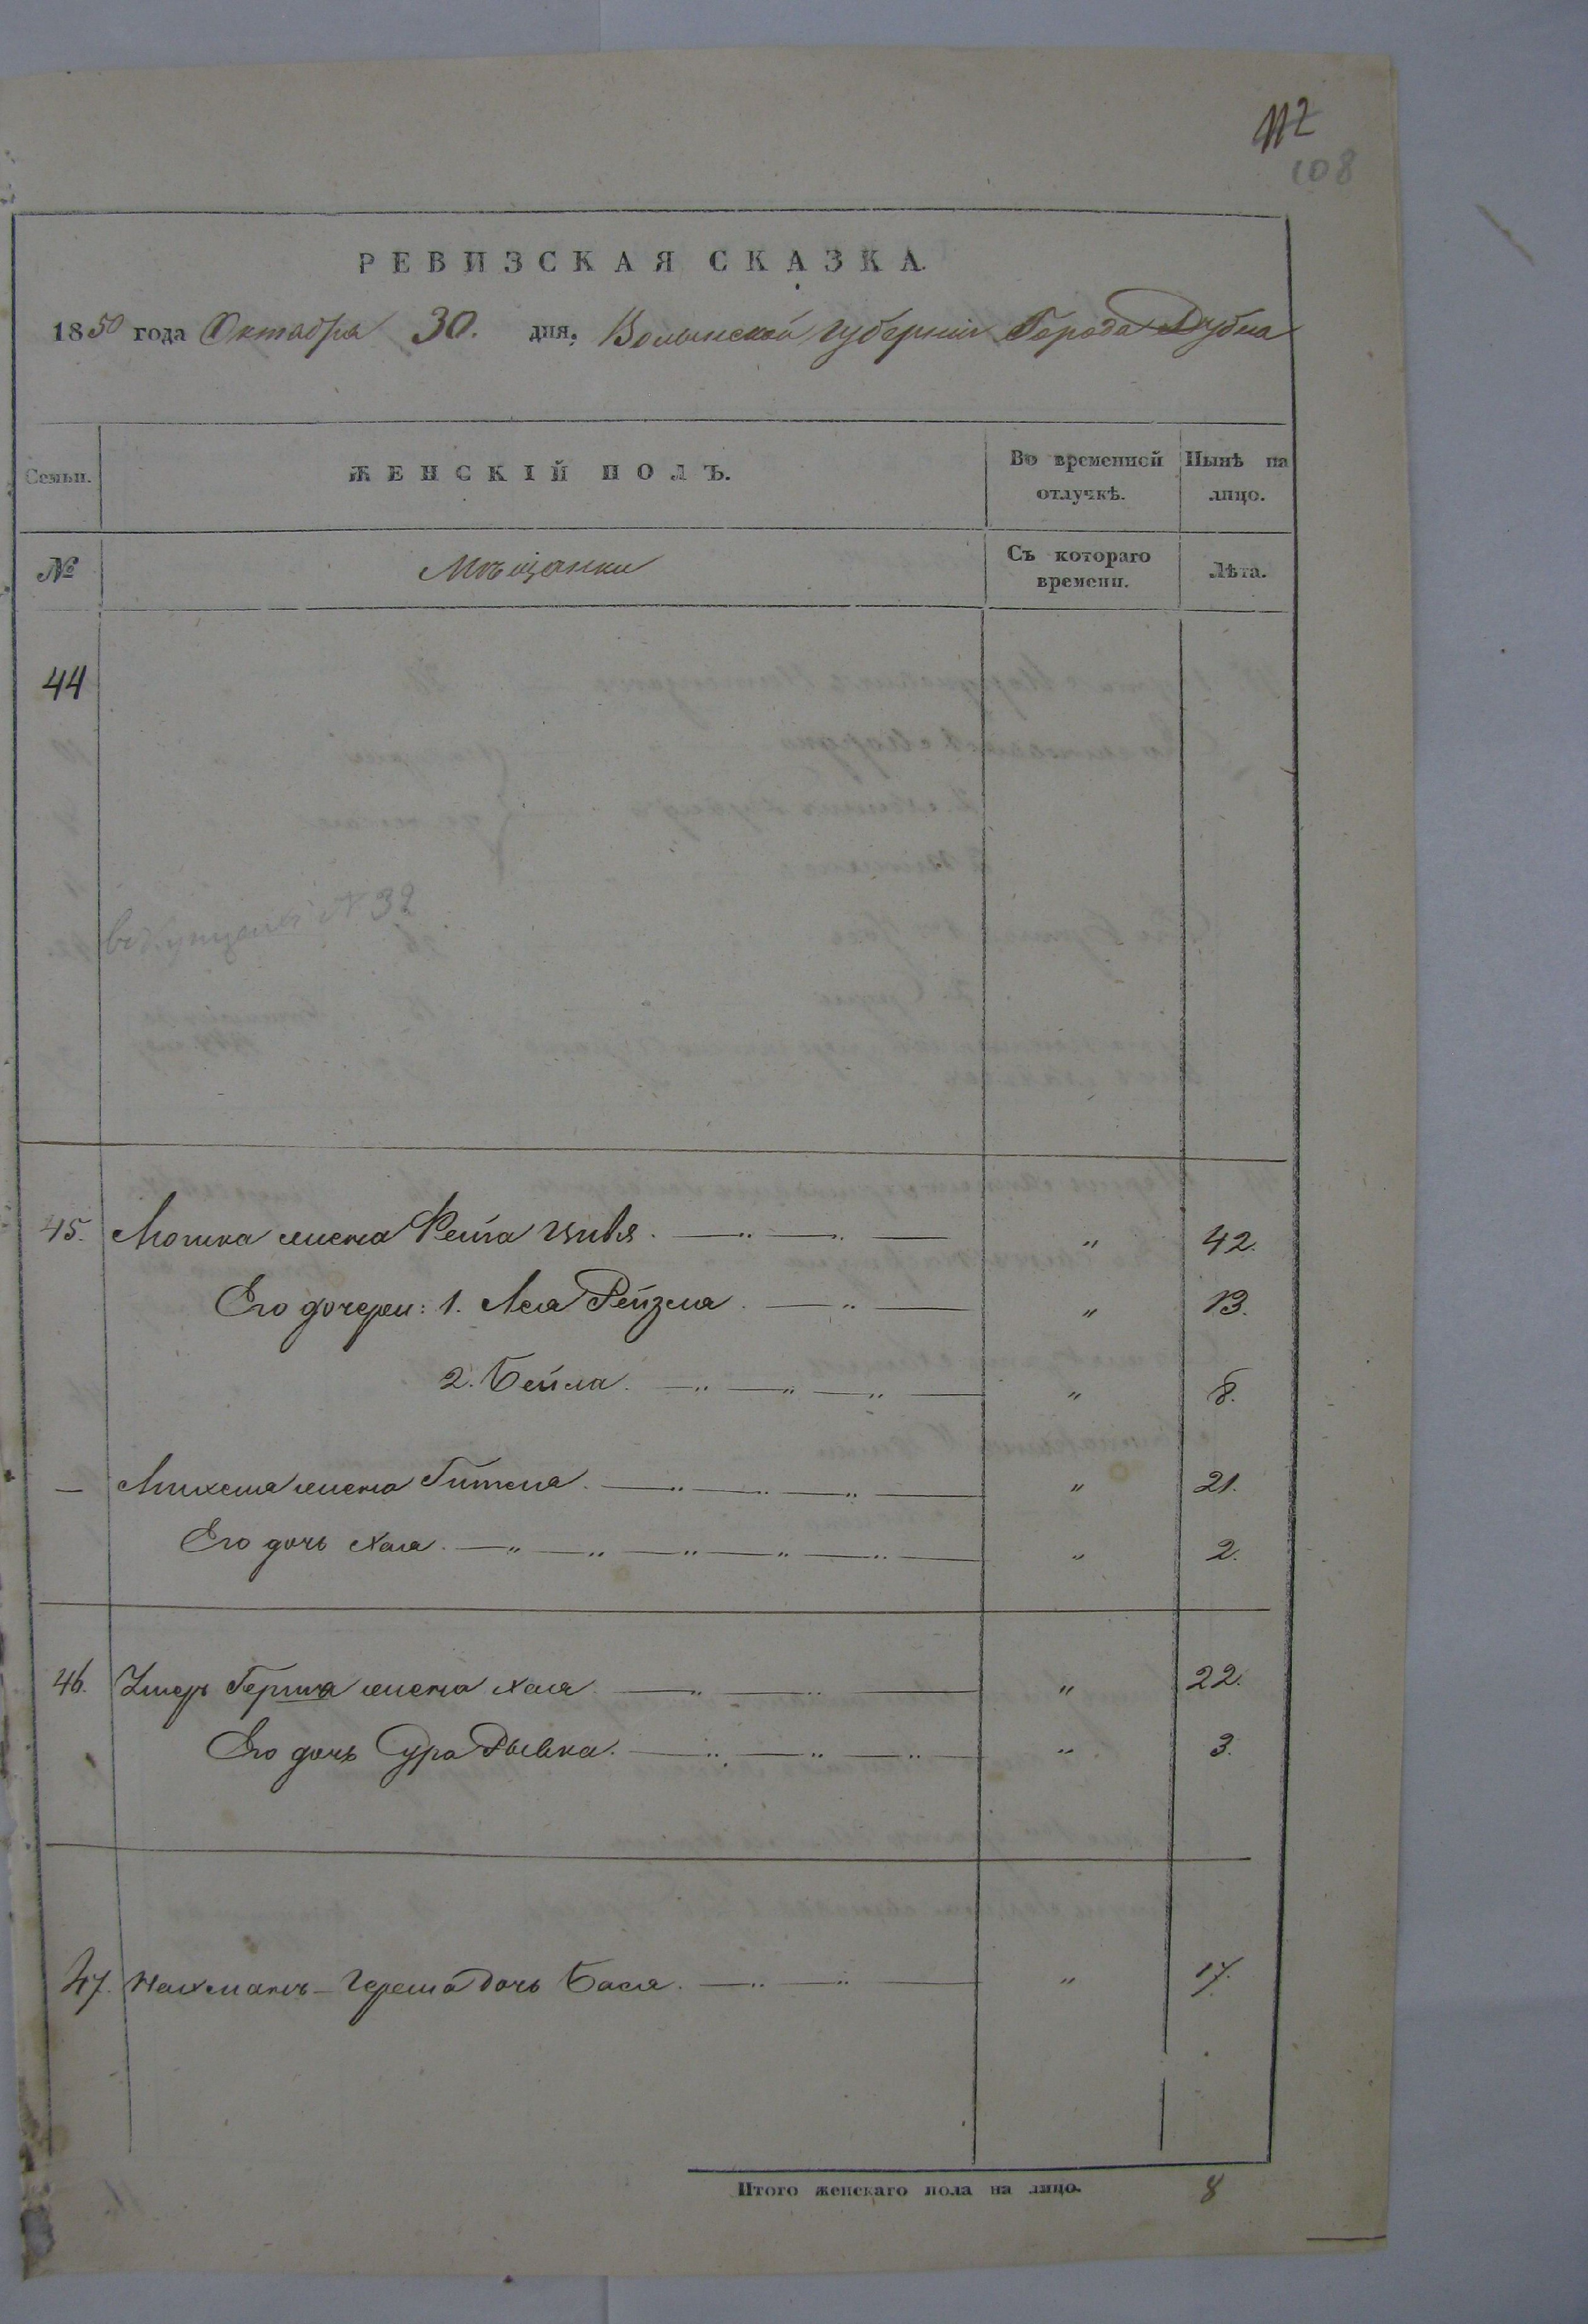 112
108
РЕВИЗСКАЯ СКАЗКА.
1850 года Октября 30. дня. Волынской губернии Города Дубна
Семьи. ЖЕНСКІЙ ПОЛЪ. Во временной отлучкѣ. Нынѣ на лицо.
№ Мѣщанки Съ котораго времени. Лѣта.
44
№ 32
45. Мошка жена Фейга Цивя. " 42.
Его дочери: 1. Лея Рейзля. " 13.
2. Бейла. " 8.
— Михеля жена Гитля. " 21.
Его дочь Хая. " 2.
46. Герша жена Хая " 22.
Его дочь Сура Рывка. " 3.
47. Нахманъ-Герша дочь Бася. " 17.
Итого женскаго пола на лицо. 8